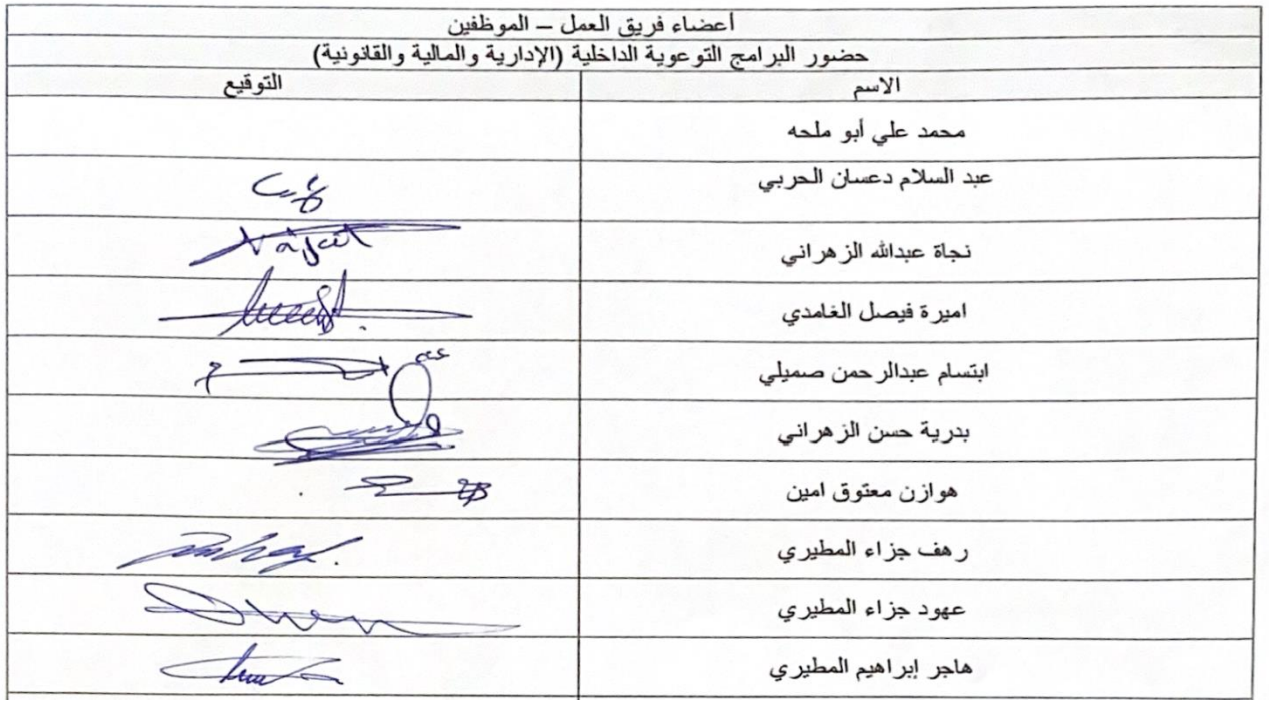 أعضاء فريق العمل – الموظفين
حضور البرامج التوعوية الداخلية (الإدارية والمالية والقانونية)
الاسم التوقيع
محمد علي أبو ملحه
عبد السلام دعسان الحربي
نجاة عبدالله الزهراني Najat
اميرة فيصل الغامدي
ابتسام عبدالرحمن صميلي
بدرية حسن الزهراني
هوازن معتوق امين
رهف جزاء المطيري
عهود جزاء المطيري
هاجر إبراهيم المطيري